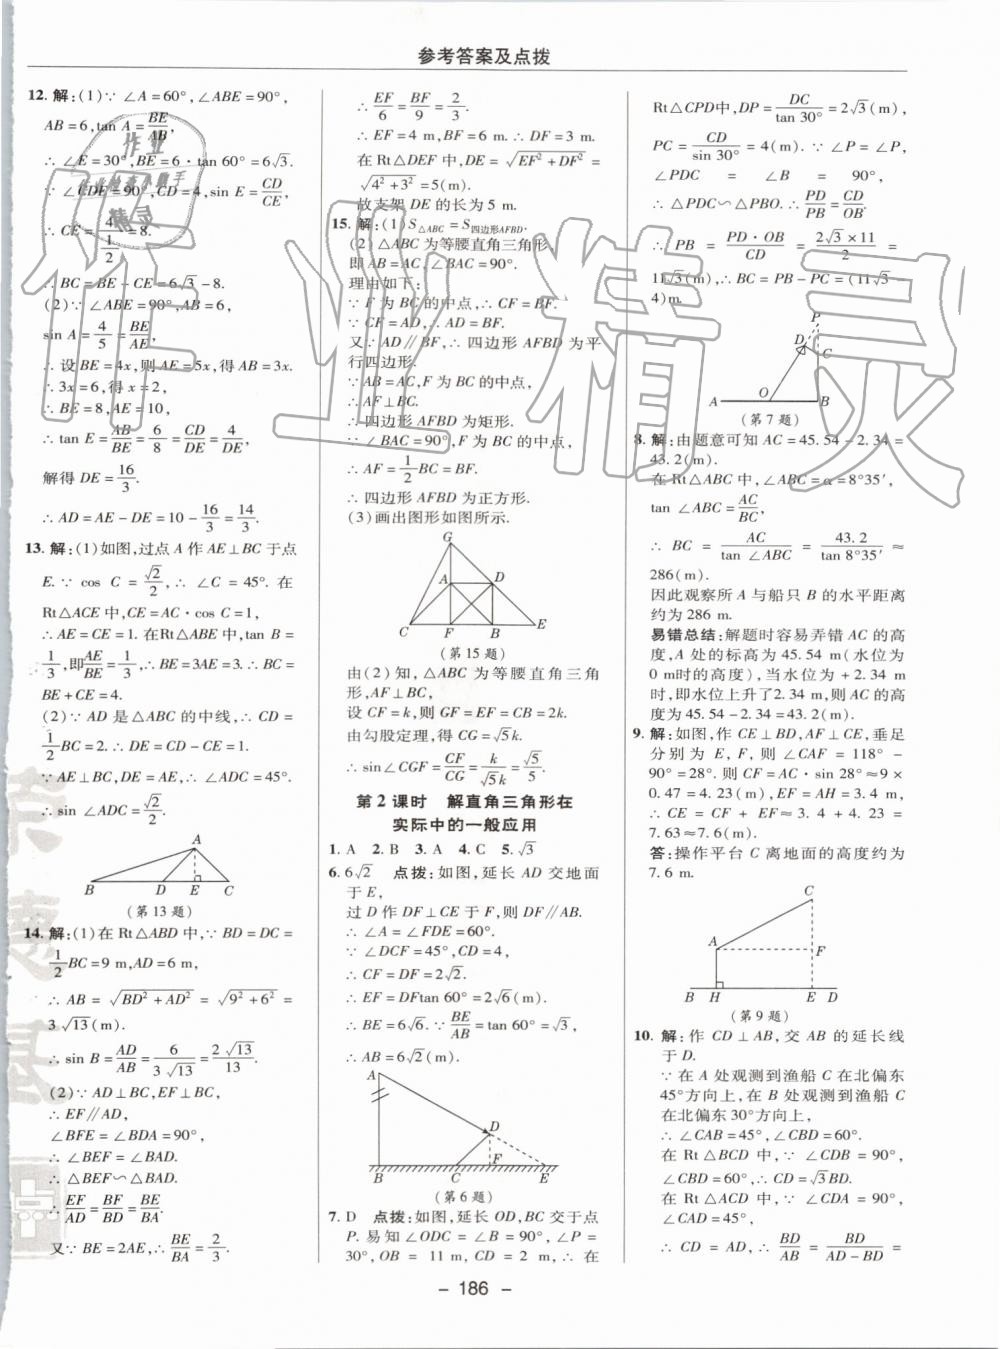 参考答案及点拨
12. 解:(1)∵ ∠A=60°,∠ABE=90°,
AB=6,tan A=BE/AB,
∴ ∠E=30°,BE=6·tan 60°=6√3.
∵ ∠CDE=90°,CD=4,sin E=CD/CE,
∴ CE=4/(1/2)=8.
∴ BC=BE-CE=6√3-8.
(2)∵ ∠ABE=90°,AB=6,
sin A=4/5=BE/AE,
∴ 设 BE=4x,则 AE=5x,得 AB=3x.
∴ 3x=6,得 x=2,
∴ BE=8,AE=10,
∴ tan E=AB/BE=6/8=CD/DE=4/DE,
解得 DE=16/3.
∴ AD=AE-DE=10-16/3=14/3.
13. 解:(1)如图,过点 A 作 AE⊥BC 于点
E. ∵ cos C=√2/2,∴ ∠C=45°. 在
Rt△ACE 中,CE=AC·cos C=1,
∴ AE=CE=1. 在Rt△ABE 中,tan B=
1/3,即AE/BE=1/3,∴ BE=3AE=3. ∴ BC=
BE+CE=4.
(2)∵ AD 是△ABC 的中线,∴ CD=
1/2BC=2. ∴ DE=CD-CE=1.
∵ AE⊥BC,DE=AE,∴ ∠ADC=45°.
∴ sin ∠ADC=√2/2.
A
B D E C
(第13题)
14. 解:(1)在 Rt△ABD 中,∵ BD=DC=
1/2BC=9 m,AD=6 m,
∴ AB=√(BD²+AD²)=√(9²+6²)=
3√13(m).
∴ sin B=AD/AB=6/(3√13)=2√13/13.
(2)∵ AD⊥BC,EF⊥BC,
∴ EF∥AD,
∠BFE=∠BDA=90°,
∴ ∠BEF=∠BAD.
∴ △BEF∽△BAD.
∴ EF/AD=BF/BD=BE/BA.
又∵ BE=2AE,∴ BE/BA=2/3.
∴ EF/6=BF/9=2/3.
∴ EF=4 m,BF=6 m. ∴ DF=3 m.
在 Rt△DEF 中,DE=√(EF²+DF²)=
√(4²+3²)=5(m).
故支架 DE 的长为 5 m.
15. 解:(1)S△ABC=S四边形AFBD.
(2)△ABC 为等腰直角三角形,
即 AB=AC,∠BAC=90°.
理由如下:
∵ F 为 BC 的中点,∴ CF=BF.
∵ CF=AD,∴ AD=BF.
又∵ AD∥BF,∴ 四边形 AFBD 为平
行四边形.
∵ AB=AC,F 为 BC 的中点,
∴ AF⊥BC.
∴ 四边形 AFBD 为矩形.
∵ ∠BAC=90°,F 为 BC 的中点,
∴ AF=1/2BC=BF.
∴ 四边形 AFBD 为正方形.
(3)画出图形如图所示.
G
A D
C F B E
(第15题)
由(2)知,△ABC 为等腰直角三角
形,AF⊥BC,
设 CF=k,则 GF=EF=CB=2k.
由勾股定理,得 CG=√5k.
∴ sin∠CGF=CF/CG=k/(√5k)=√5/5.
第 2 课时 解直角三角形在
实际中的一般应用
1. A 2. B 3. A 4. C 5. √3
6. 6√2 点拨:如图,延长 AD 交地面
于 E,
过 D 作 DF⊥CE 于 F,则 DF∥AB.
∴ ∠A=∠FDE=60°.
∵ ∠DCF=45°,CD=4,
∴ CF=DF=2√2.
∴ EF=DFtan 60°=2√6(m).
∴ BE=6√6. ∵ BE/AB=tan 60°=√3,
∴ AB=6√2(m).
A
D
B C F E
(第6题)
7. D 点拨:如图,延长 OD,BC 交于点
P. 易知∠ODC=∠B=90°,∠P=
30°,OB= 11 m,CD=2 m,∴ 在
Rt△CPD中,DP=DC/tan 30°=2√3(m),
PC=CD/sin 30°=4(m). ∵ ∠P=∠P,
∠PDC=∠B=90°,
∴ △PDC∽△PBO. ∴ PD/PB=CD/OB.
∴ PB=PD·OB/CD=2√3×11/2=
11√3(m),∴ BC=PB-PC=(11√3-
4)m.
P
D
C
A O B
(第7题)
8. 解:由题意可知 AC=45.54-2.34=
43.2(m).
在 Rt△ABC 中,∠ABC=α=8°35′,
tan ∠ABC=AC/BC,
∴ BC=AC/tan ∠ABC=43.2/tan 8°35′≈
286(m).
因此观察所 A 与船只 B 的水平距离
约为 286 m.
易错总结:解题时容易弄错 AC 的高
度,A 处的标高为 45.54 m(水位为
0 m时的高度),当水位为 +2.34 m
时,即水位上升了2.34 m,则 AC 的高
度为 45.54-2.34=43.2(m).
9. 解:如图,作 CE⊥BD,AF⊥CE,垂足
分别为 E,F,则 ∠CAF=118°-
90°=28°. 则 CF=AC·sin 28°≈9×
0.47=4.23(m),EF=AH=3.4 m,
∴ CE=CF+EF≈3.4+4.23=
7.63≈7.6(m).
答:操作平台 C 离地面的高度约为
7.6 m.
C
A F
B H E D
(第9题)
10. 解:作 CD⊥AB,交 AB 的延长线
于 D.
∵ 在 A 处观测到渔船 C 在北偏东
45°方向上,在 B 处观测到渔船 C
在北偏东30°方向上,
∴ ∠CAB=45°,∠CBD=60°.
在 Rt△BCD 中,∵ ∠CDB=90°,
∠CBD=60°,∴ CD=√3BD.
在 Rt△ACD 中,∵ ∠CDA=90°,
∠CAD=45°,
∴ CD=AD,∴ BD/AB=BD/(AD-BD)=
- 186 -
作业精灵